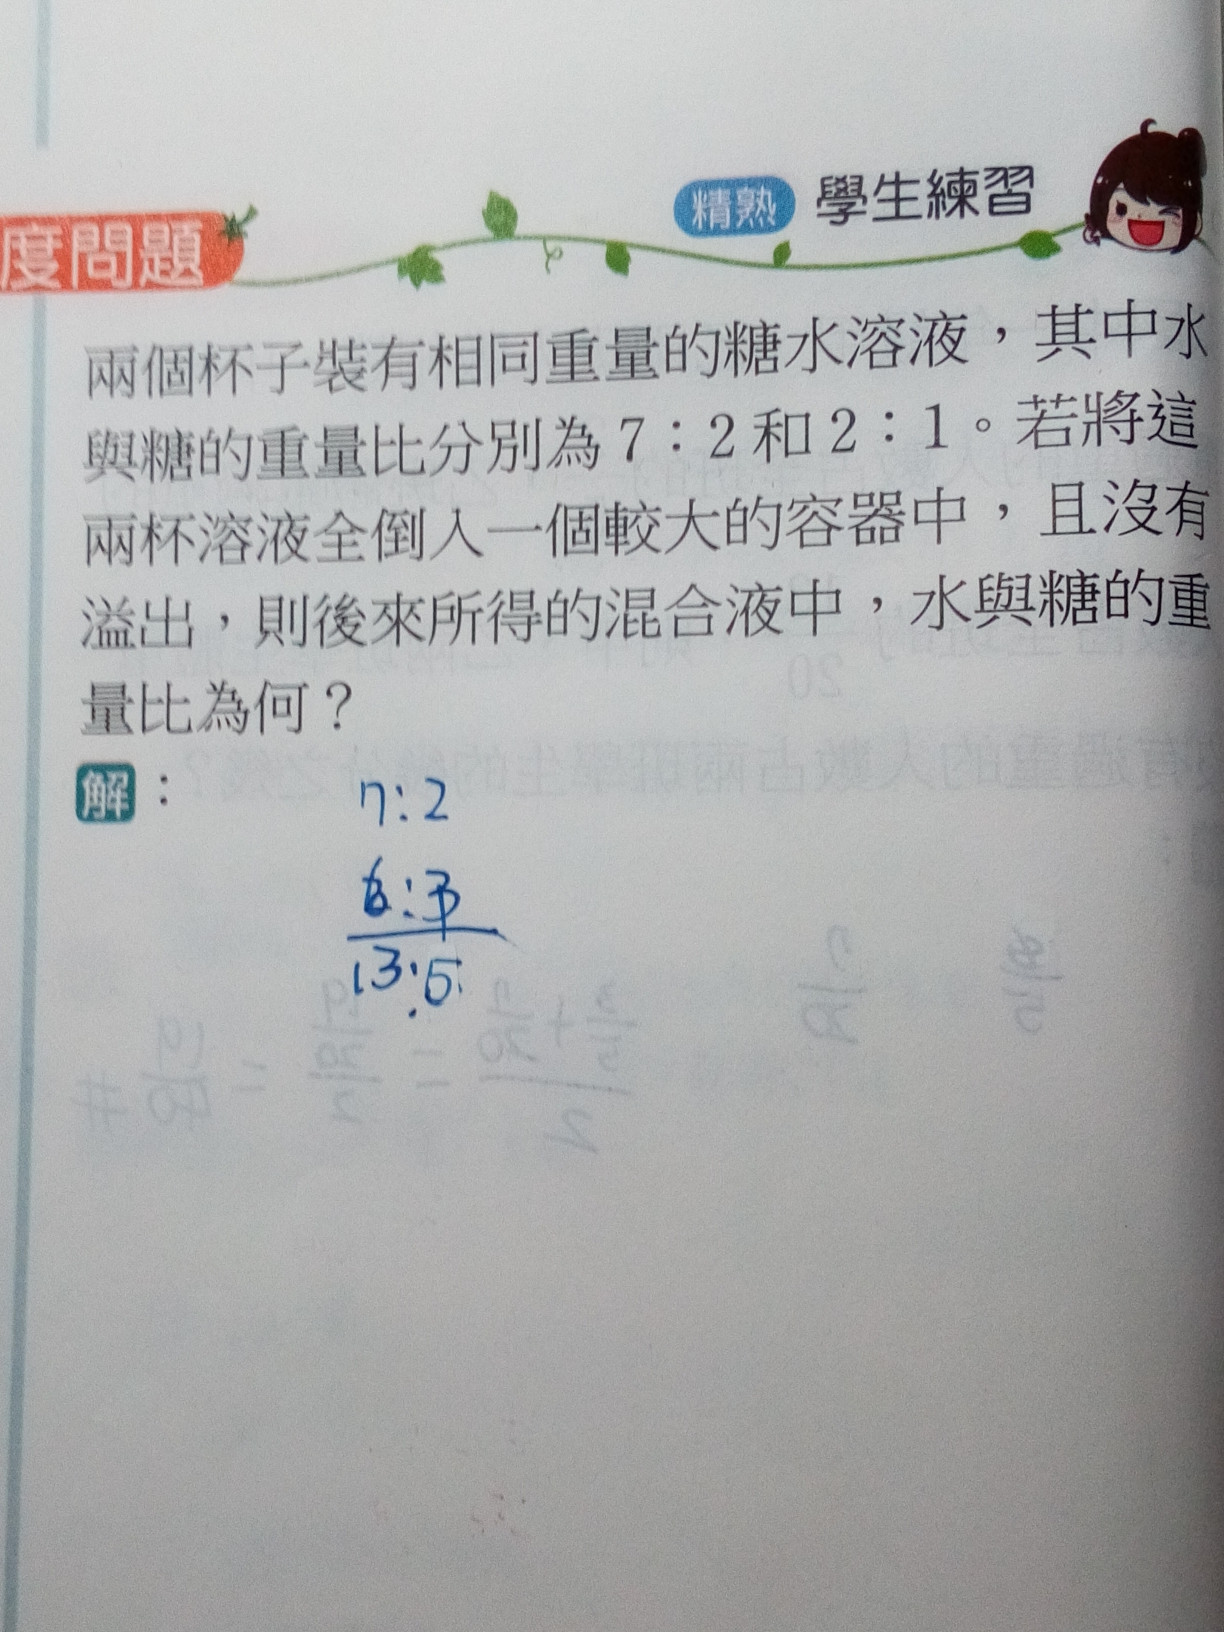 精熟 學生練習
度問題
兩個杯子裝有相同重量的糖水溶液，其中水
與糖的重量比分別為 7：2 和 2：1。若將這
兩杯溶液全倒入一個較大的容器中，且沒有
溢出，則後來所得的混合液中，水與糖的重
量比為何？
解：
7:2
6:3
13:5